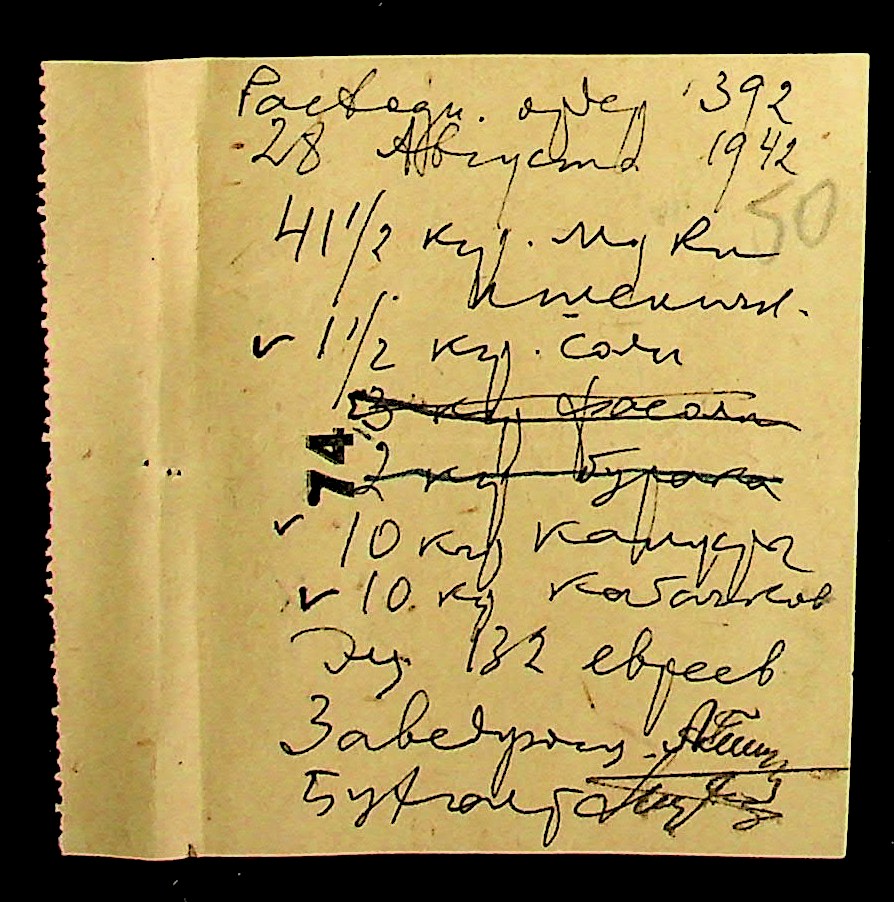 Расходн. ордер 392
28 Августа 1942
50
41 1/2 кгр. Муки
пшеничн.
1 1/2 кгр. Соли
3 кгр фасоли
74
2 кгр бурака
10 кгр капусты
10 кгр кабачков
132 евреев
Заведующ.
Бухгалтер